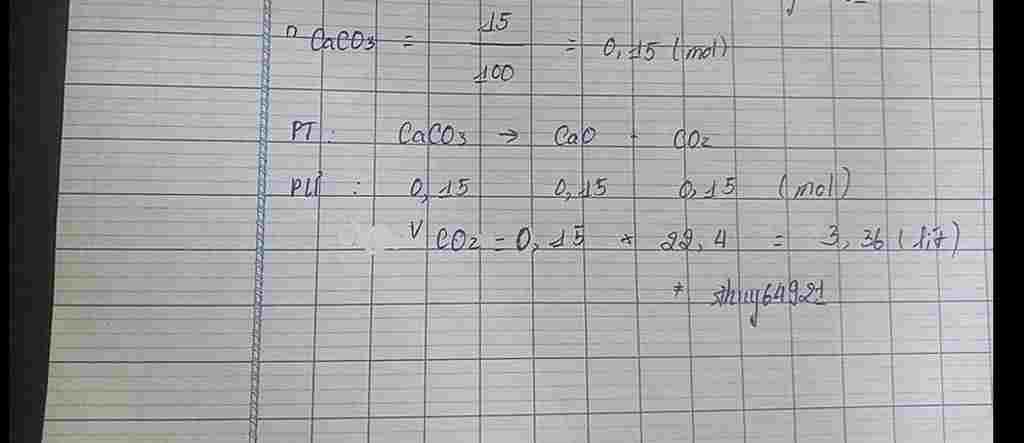 n CaCO3 = 15/100 = 0,15 (mol)
PT : CaCO3 → CaO + CO2
PƯ : 0,15 0,15 0,15 (mol)
V CO2 = 0,15 * 22,4 = 3,36 (lít)
* sthuy64921